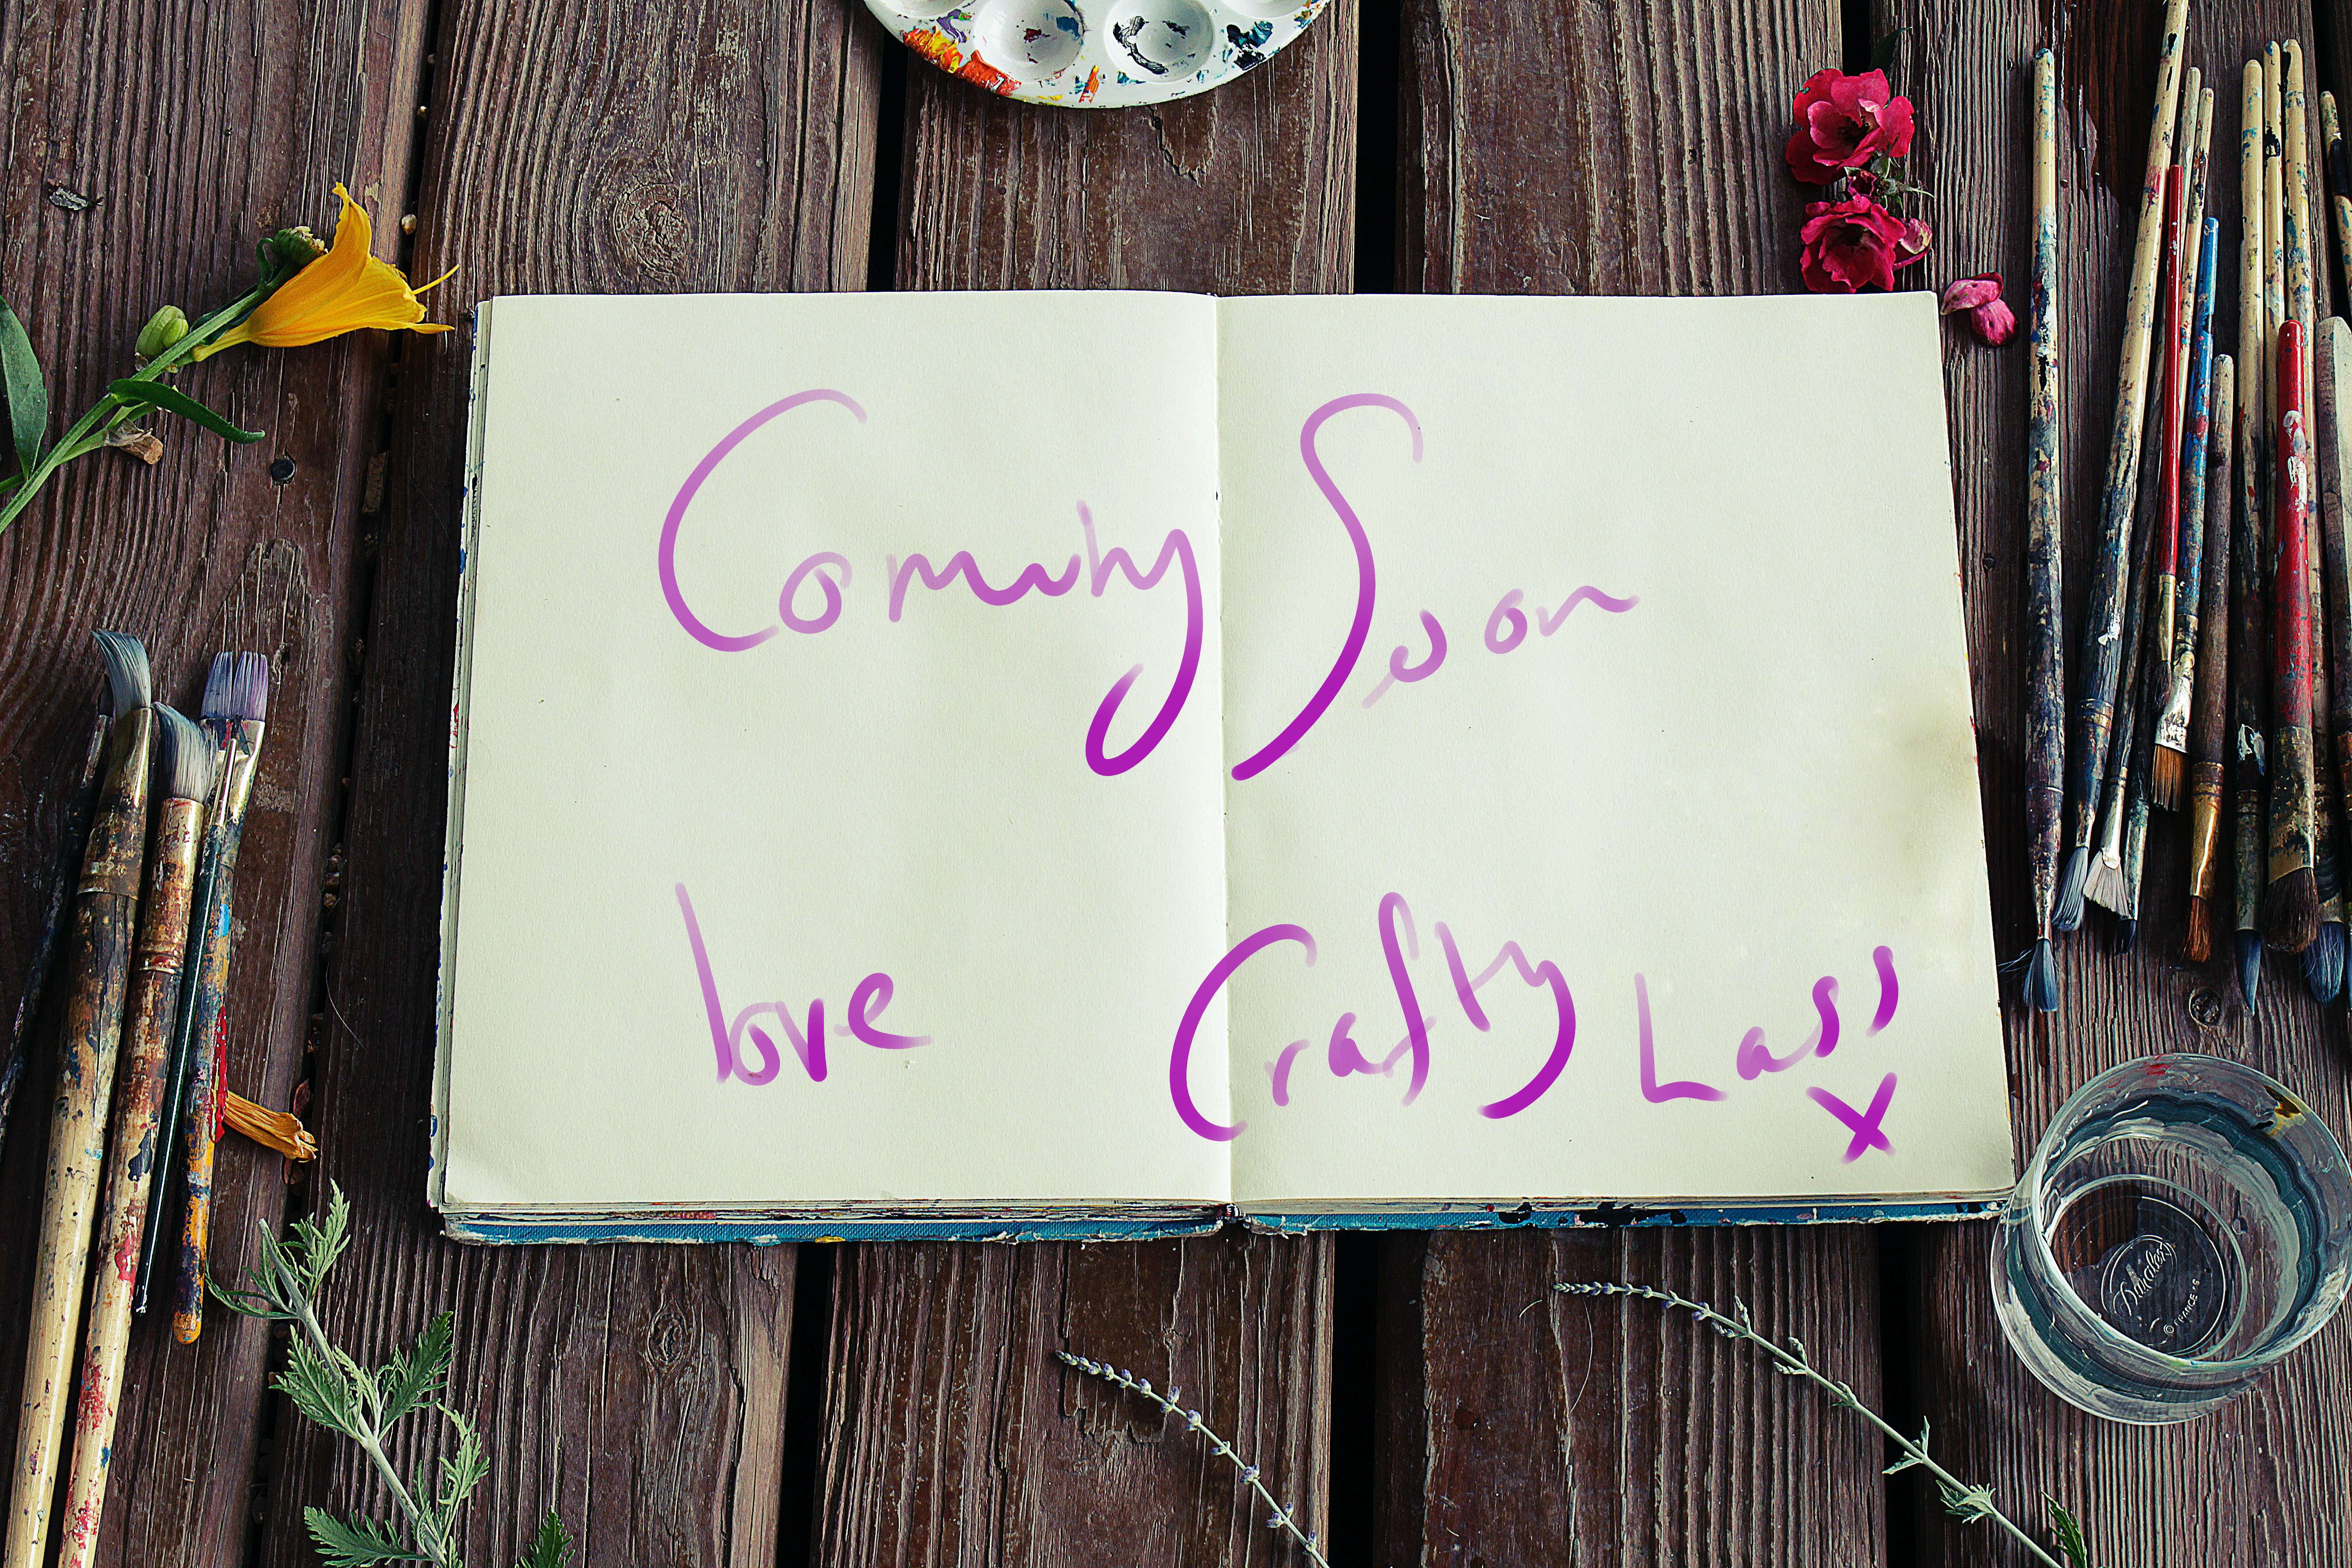 Coming Soon
love Crafty Lass
x
© FRANCE